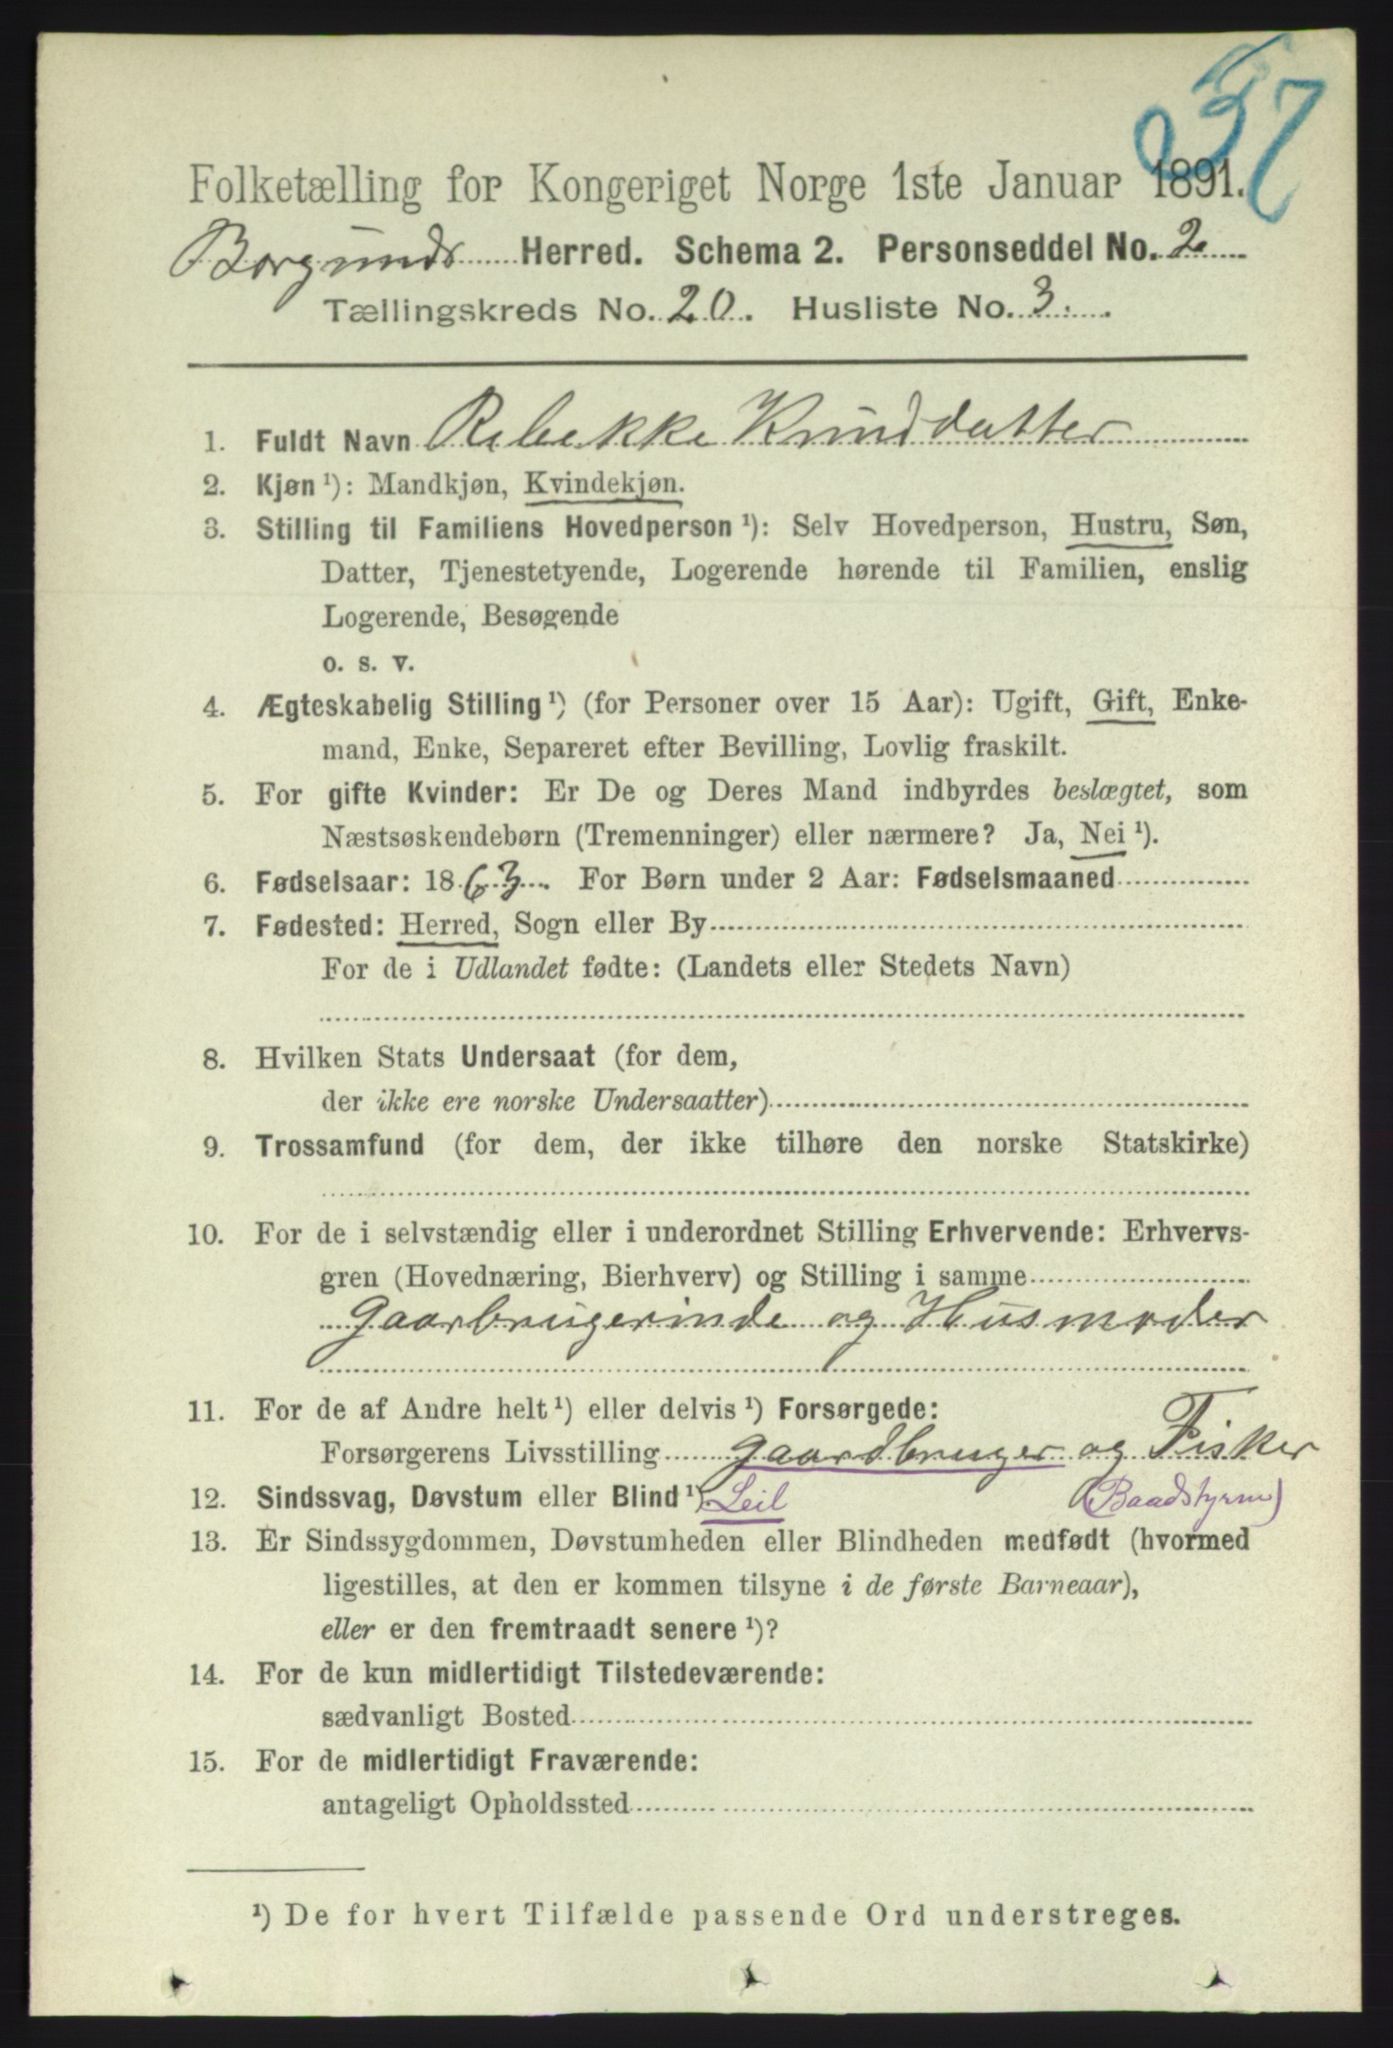 37
Folketælling for Kongeriget Norge 1ste Januar 1891.
Borgunds Herred. Schema 2. Personseddel No. 2
Tællingskreds No. 20. Husliste No. 3.
1. Fuldt Navn Rebekke Knuddatter
2. Kjøn ¹): Mandkjøn, Kvindekjøn.
3. Stilling til Familiens Hovedperson ¹): Selv Hovedperson, Hustru, Søn,
Datter, Tjenestetyende, Logerende hørende til Familien, enslig
Logerende, Besøgende
o. s. v.
4. Ægteskabelig Stilling ¹) (for Personer over 15 Aar): Ugift, Gift, Enke-
mand, Enke, Separeret efter Bevilling, Lovlig fraskilt.
5. For gifte Kvinder: Er De og Deres Mand indbyrdes beslægtet, som
Næstsøskendebørn (Tremenninger) eller nærmere? Ja, Nei ¹).
6. Fødselsaar: 1863. For Børn under 2 Aar: Fødselsmaaned
7. Fødested: Herred, Sogn eller By
For de i Udlandet fødte: (Landets eller Stedets Navn)
8. Hvilken Stats Undersaat (for dem,
der ikke ere norske Undersaatter)
9. Trossamfund (for dem, der ikke tilhøre den norske Statskirke)
10. For de i selvstændig eller i underordnet Stilling Erhvervende: Erhvervs-
gren (Hovednæring, Bierhverv) og Stilling i samme
Gaarbrugerinde og Husmoder
11. For de af Andre helt ¹) eller delvis ¹) Forsørgede:
Forsørgerens Livsstilling gaardbruger og Fisker
12. Sindssvag, Døvstum eller Blind ¹) Leil (Baadstyrm)
13. Er Sindssygdommen, Døvstumheden eller Blindheden medfødt (hvormed
ligestilles, at den er kommen tilsyne i de første Barneaar),
eller er den fremtraadt senere ¹)?
14. For de kun midlertidigt Tilstedeværende:
sædvanligt Bosted
15. For de midlertidigt Fraværende:
antageligt Opholdssted
¹) De for hvert Tilfælde passende Ord understreges.